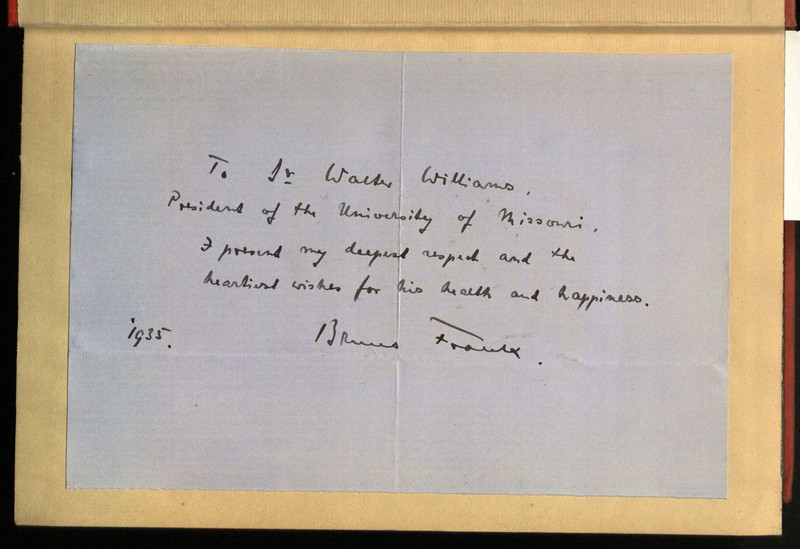 To Dr Walter Williams,
President of the University of Missouri,
I present my deepest respect and the
heartiest wishes for his health and happiness.
1935. Bruno Frank.